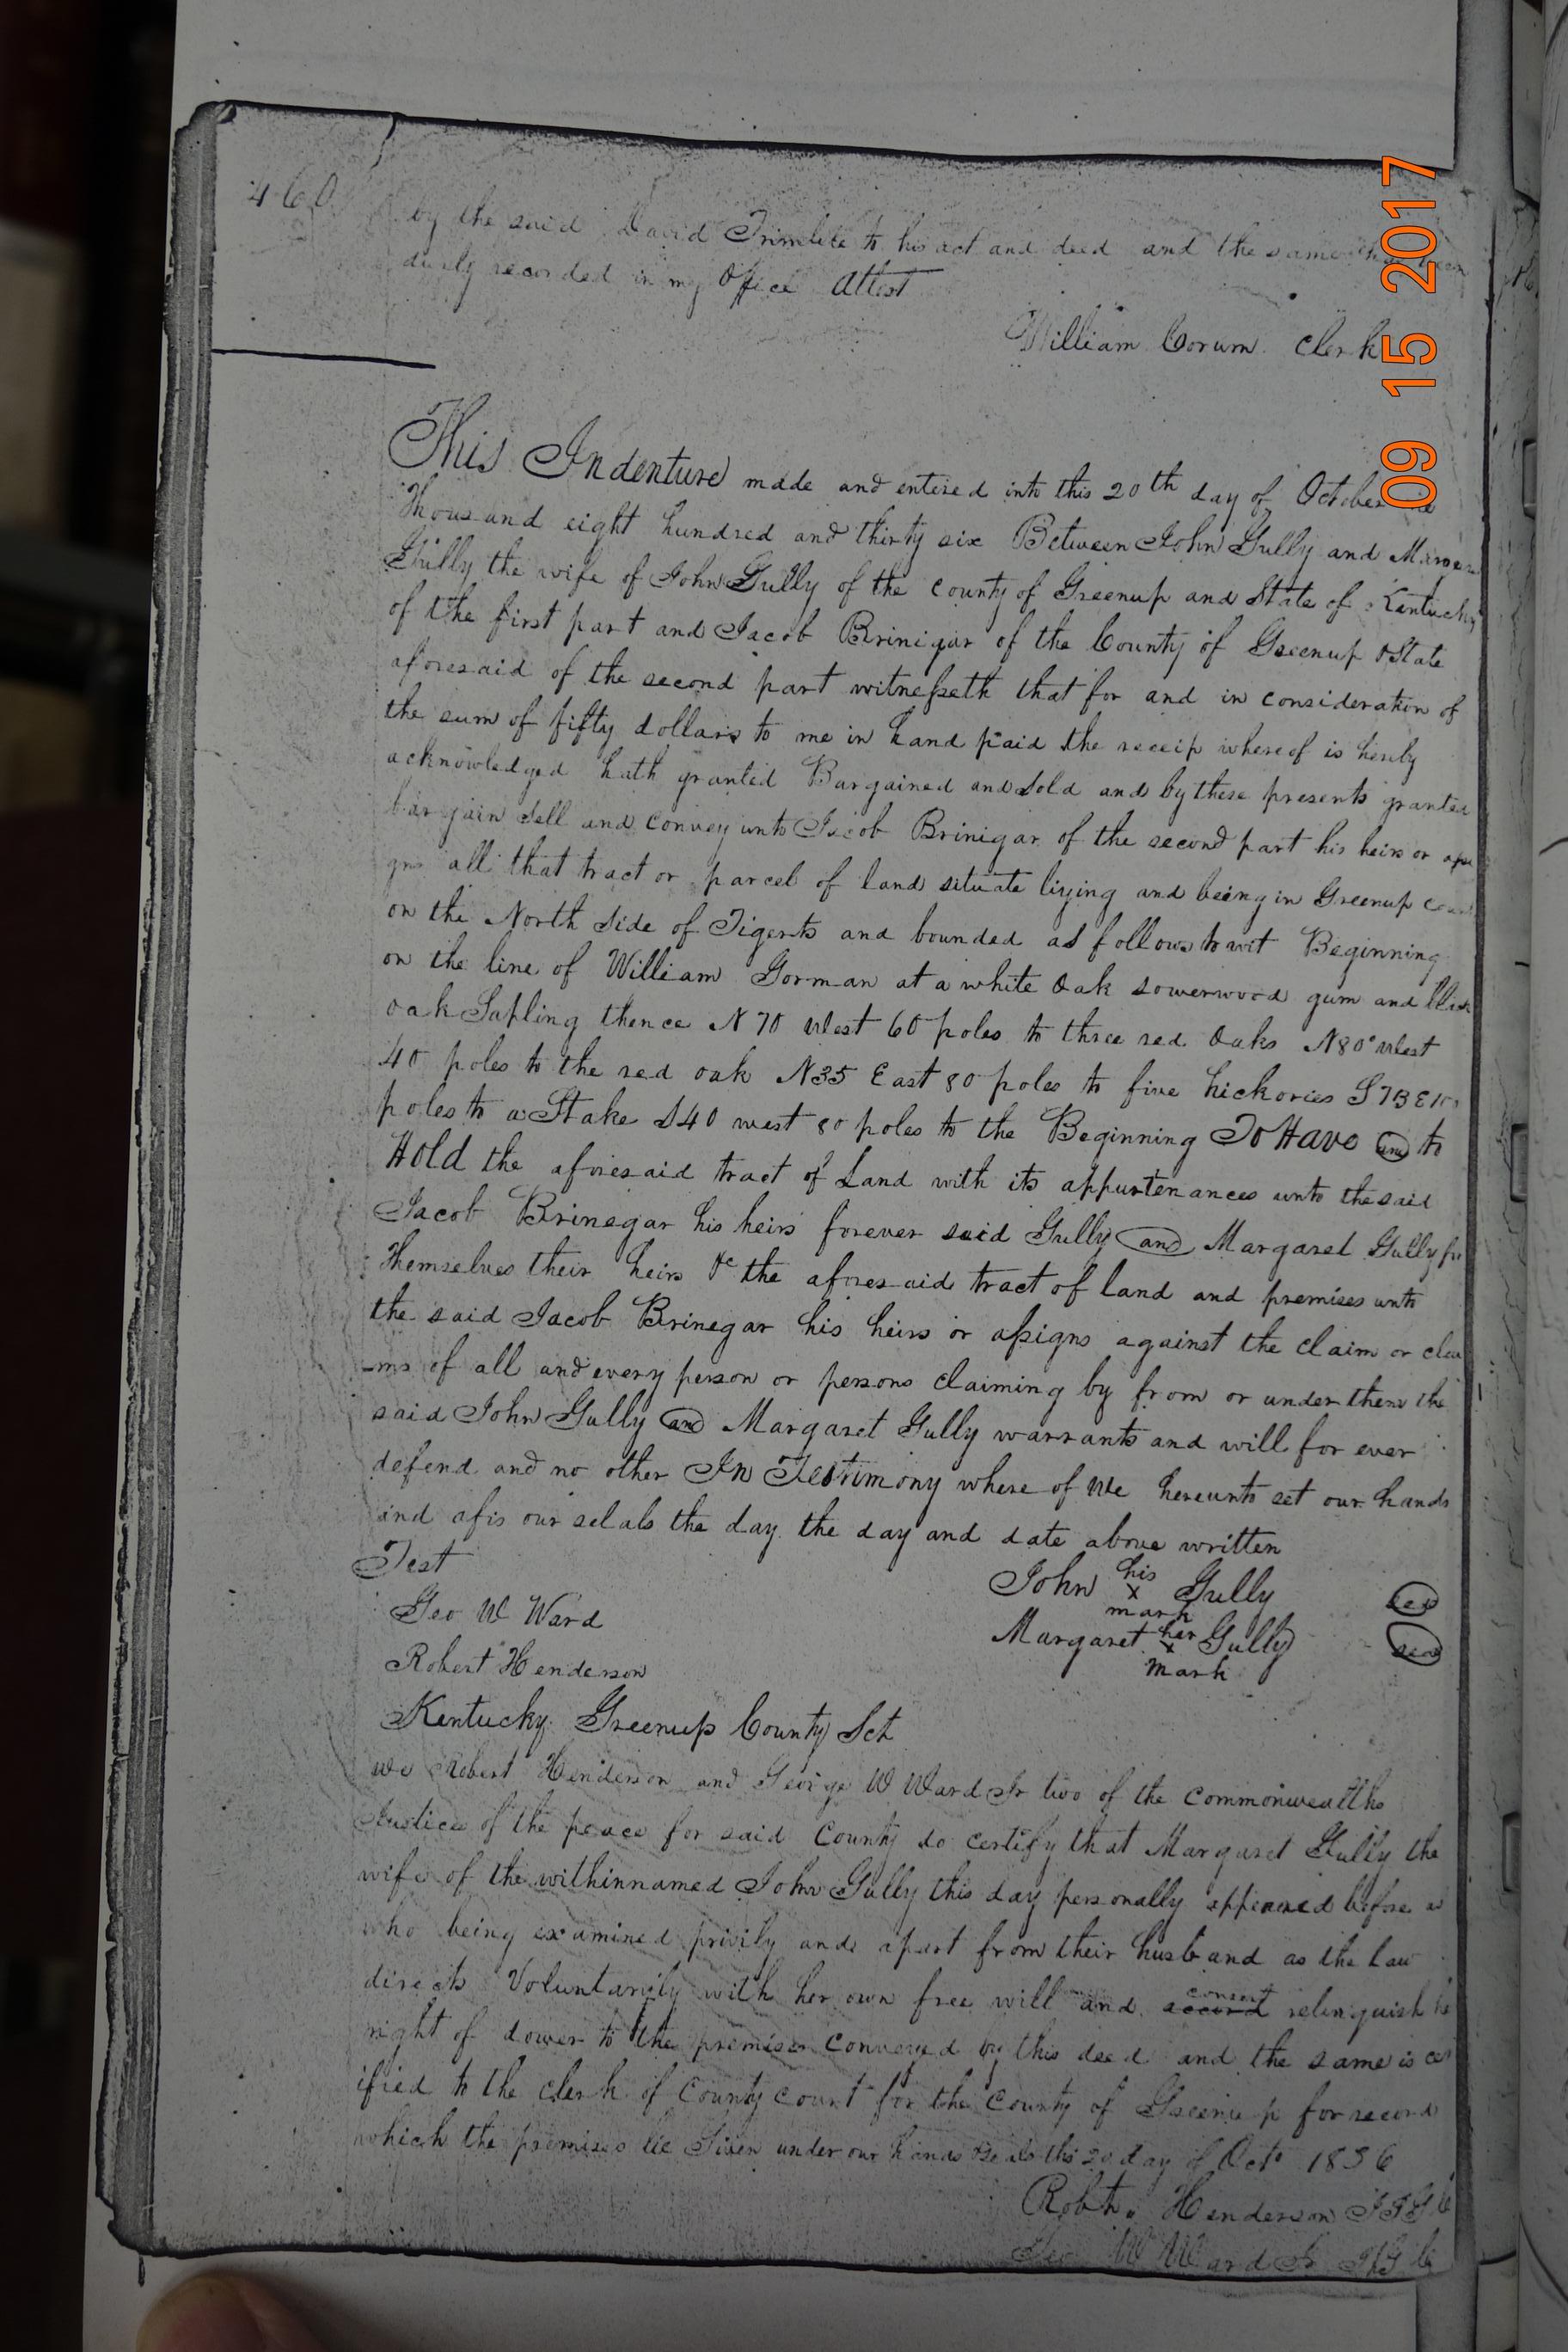 460
by the said David Trimble to his act and deed and the same has been
duly recorded in my Office Attest
William Corum Clerk
This Indenture made and entered into this 20th day of October
Thousand eight hundred and thirty six Between John Gully and
Gully the wife of John Gully of the county of Greenup and State of Kentucky
of the first part and Jacob Brinigar of the County of Greenup & State
aforesaid of the second part witnesseth that for and in consideration of
the sum of fifty dollars to me in hand paid the receip whereof is hereby
acknowledged hath granted Bargained and Sold and by these presents granted
bargain Sell and convey unto Jacob Brinigar of the second part his heirs or assi
gns all that tract or parcel of land situate liying and being in Greenup
on the North Side of Tigerts and bounded as follows to wit Beginning
on the line of William Gorman at a white Oak sowerwood gum and Black
oak Sapling thence N 70 West 60 poles to three red Oaks N80° West
40 poles to the red oak N35 East 80 poles to five hickories
poles to a Stake S40 west 80 poles to the Beginning To Have and to
Hold the aforesaid tract of Land with its appurtenances unto the said
Jacob Brinegar his heirs forever said Gully and Margaret Gully for
themselves their heirs &c the aforesaid tract of land and premises unto
the said Jacob Brinegar his heirs or assigns against the claim or clai
-ms of all and every person or persons claiming by from or under them the
said John Gully and Margaret Gully warrants and will for ever
defend and no other In Testimony where of We hereunto set our hands
and afis our selals the day the day and date above written
Test
John his x mark Gully seal
Geo W Ward
Margaret her x mark Gully seal
Robert Henderson
Kentucky Greenup County Sct
We Robert Henderson and George W Ward Jr two of the Commonwealths
Justices of the peace for said County do certify that Margaret Gully the
wife of the withinnamed John Gully this day personally appeared before us
who being examined privily and apart from their husband as the law
directs Voluntarily with her own free will and accord consent relinquish
right of dower to the premises conveyed by this deed and the same is cer
ified to the clerk of County court for the County of Greenup for record
which the premises lie Given under our hands & seals this 20 day of Oct 1836
Robt. Henderson
Geo W Ward Jr
09 15 2017